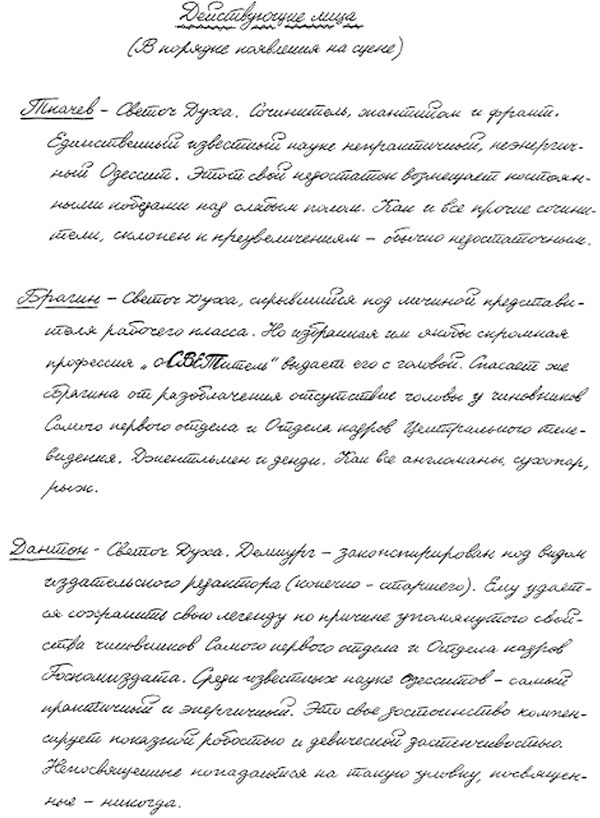 Действующие лица
(В порядке появления на сцене)
Ткачев – Светоч Духа. Сочинитель, жантийом и франт.
Единственный известный науке непрактичный, неэнергич-
ный Одессит. Этот свой недостаток возмещает постоян-
ными победами над слабым полом. Как и все прочие сочини-
тели, склонен к преувеличениям – обычно недостаточным.
Брагин – Светоч Духа, скрывшийся под личиной представи-
теля рабочего класса. Но избранная им якобы скромная
профессия „оСВЕТитель“ выдает его с головой. Спасает же
Брагина от разоблачения отсутствие головы у чиновников
Самого первого отдела и Отдела кадров Центрального теле-
видения. Джентльмен и денди. Как все англоманы, сухопар,
рыж.
Дантон - Светоч Духа. Демиург – законспирирован под видом
издательского редактора (конечно - старшего). Ему удает-
ся сохранить свою легенду по причине упомянутого свой-
ства чиновников Самого первого отдела и Отдела кадров
Госкомиздата. Среди известных науке одесситов - самый
практичный и энергичный. Это свое достоинство компен-
сирует показной робостью и девической застенчивостью.
Непосвященные попадаются на такую уловку, посвящен-
ные – никогда.